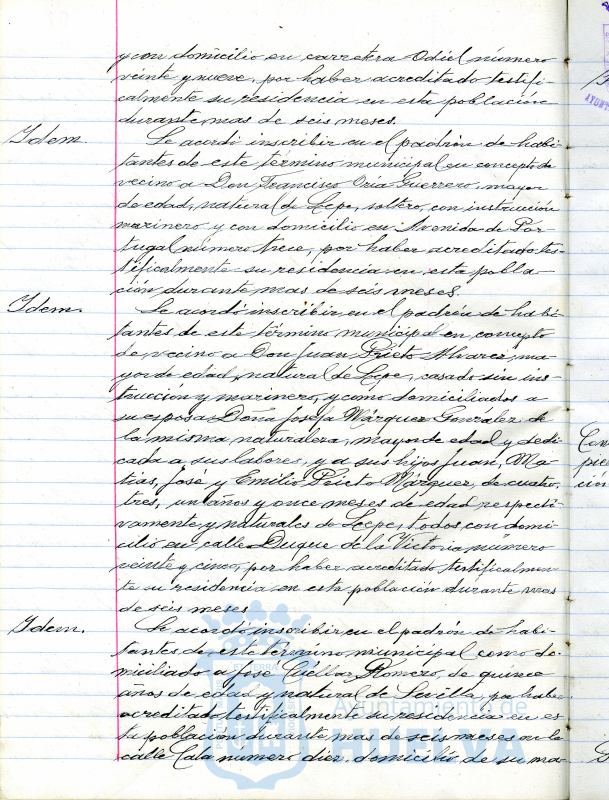 y con domicilio en carretera Odiel número
veinte y nueve, por haber acreditado testifi-
calmente su residencia en esta población
durante mas de seis meses.
Idem.
Se acordó inscribir en el padrón de habi-
tantes de este término municipal en concepto de
vecino a Don Francisco Oria Guerrero, mayor
de edad, natural de Lepe, soltero, con instrucción
marinero y con domicilio en Avenida de Por-
tugal número trece, por haber acreditado tes-
tificalmente su residencia en esta pobla-
ción durante mas de seis meses.
Idem.
Se acordó inscribir en el padrón de habi-
tantes de este término municipal en concepto
de vecino a Don Juan Prieto Alvarez, ma-
yor de edad, natural de Lepe, casado sin ins-
trucción y marinero, y como domiciliados a
su esposa Doña Josefa Márquez González de
la misma naturaleza, mayor de edad y dedi-
cada a sus labores, y a sus hijos Juan, Ma-
tias, José y Emilio Prieto Márquez, de cuatro,
tres, un años y once meses de edad respecti-
vamente, y naturales de Lepe, todos con domi-
cilio en calle Duque de la Victoria número
veinte y cinco, por haber acreditado testificalmen-
te su residencia en esta población durante mas
de seis meses
Idem.
Se acordó inscribir en el padrón de habi-
tantes de este término municipal como do-
miciliado a José Cuellar Romero, de quince
años de edad y natural de Sevilla, por haber
acreditado testificalmente su residencia en es-
ta población durante mas de seis meses en la
calle Cala número diez, domicilio de su ma-
Ayuntamiento de
HUELVA